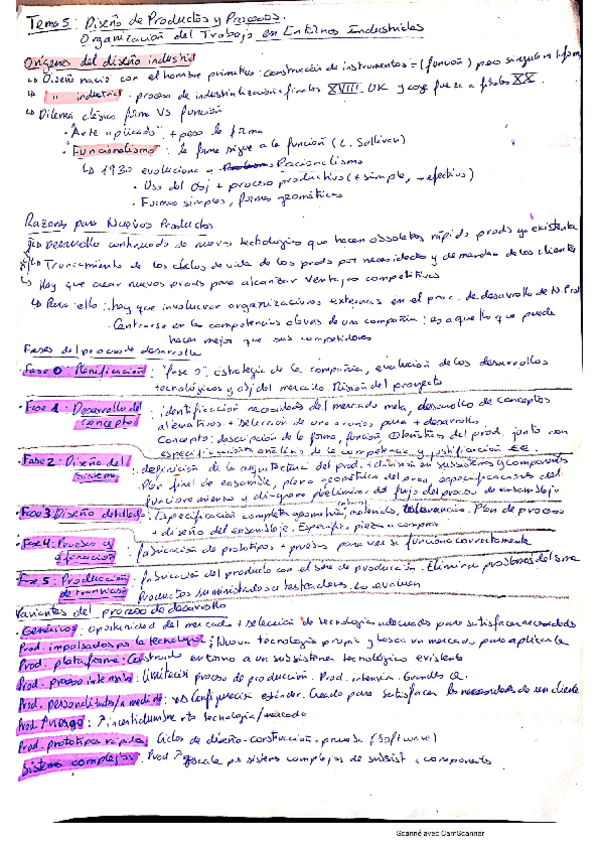 Tema 5: Diseño de Productos y Procesos.
Organización del Trabajo en Entornos Industriales
Orígenes del diseño industrial
↳ Diseño nació con el hombre primitivo: construcción de instrumentos = (función) pero singular
↳ " industrial: proceso de industrialización a finales XVIII. UK y coge fuerza a finales XX.
↳ Dilema clásico forma VS función
• "Arte aplicado" + peso la forma
• "Funcionalismo": la forma sigue a la función (L. Sullivan)
↳ 1930 evoluciona a Racionalismo
• Uso del obj + proceso productivo (+ simple, + efectivo)
• Formas simples, formas geométricas
Razones para Nuevos Productos
↳ Desarrollo continuado de nuevas tecnologías que hacen obsoletos rápido prods ya existentes
↳ Truncamiento de los ciclos de vida de los prods por necesidades y demandas de los clientes
↳ Hay que crear nuevos prods para alcanzar ventajas competitivas
↳ Para ello: hay que involucrar organizaciones externas en el proc. de desarrollo de N. Prod
• Centrarse en las competencias claves de una compañía: es aquello que puede
hacer mejor que sus competidores
Fases del proceso de desarrollo
Fase 0: Planificación: "fase 0". Estrategia de la compañía, evaluación de los desarrollos
tecnológicos y obj del mercado. Misión del proyecto
Fase 1: Desarrollo del concepto: identificación necesidades del mercado meta, desarrollo de conceptos
alternativos + selección de uno o varios para + desarrollo
Concepto: descripción de la forma, función del prod. junto con
especificaciones análisis de la competencia y justificación EE.
Fase 2: Diseño del sistema: definición de la arquitectura del prod. + división en subsistemas y componentes
Plan final de ensamble, plano geométrico del prod, especificaciones del
funcionamiento y diagrama preliminar del flujo del proceso de ensamblaje
Fase 3: Diseño detallado: Especificación completa geometría, materiales, tolerancia. Plan de proceso
+ diseño del ensamblaje. Especific. piezas a comprar
Fase 4: Pruebas y : fabricación de prototipos + pruebas para ver si funciona correctamente
Fase 5: Producción de transición: fabricación del producto con el sme de producción. Eliminar problemas del sme
Productos suministrados a testeadores. Lo evalúan
Variantes del proceso de desarrollo
Genéricos: oportunidad del mercado + selección de tecnologías adecuadas para satisfacer necesidades
Prod. impulsados por la tecnología: Nueva tecnología propia y busca un mercado para aplicarla
Prod. plataforma: Construido entorno a un subsistema tecnológico existente
Prod. proceso intensivo: limitación proceso de producción. Prod. intensiva. Grandes Q.
Prod. personalizados/a medida: Configuración estándar. Creado para satisfacer las necesidades de un cliente
Prod. ↑ riesgo: ↑ incertidumbre rto tecnología/mercado
Prod. prototipos rápidos: Ciclos de diseño-construcción-prueba (Software)
Sistemas complejos: Prod ↑ escala pr sistems complejos de subsist. , componentes
Scanné avec CamScanner